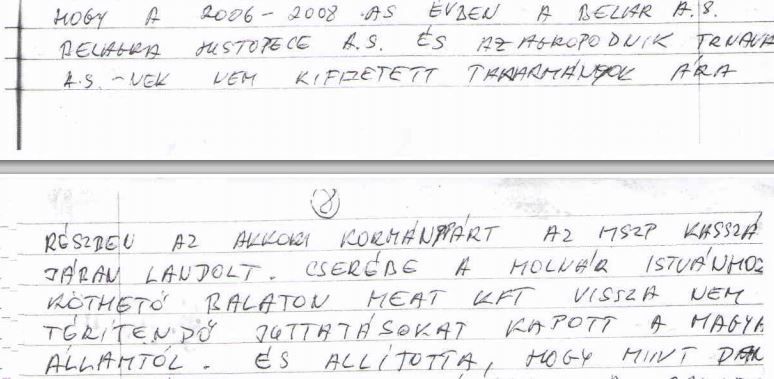 HOGY A 2006-2008 AS ÉVBEN A BELAR A.S.
BELAGRA HUSTOPECE A.S. ÉS AZ AGROPODNIK TRNAVA
A.S. -NEK NEM KIFIZETETT TAKARMÁNYOK ÁRA
8
RÉSZBEN AZ AKKORI KORMÁNYPÁRT AZ MSZP KASSZÁ
JÁRAN LANDOLT. CSERÉBE A MOLNÁR ISTVÁNHOZ
KÖTHETŐ BALATON MEAT KFT VISSZA NEM
TÉRITENDŐ JUTTATÁSOKAT KAPOTT A MAGYA
ÁLLAMTÓL. ÉS ALLÍTOTTA, HOGY MINT